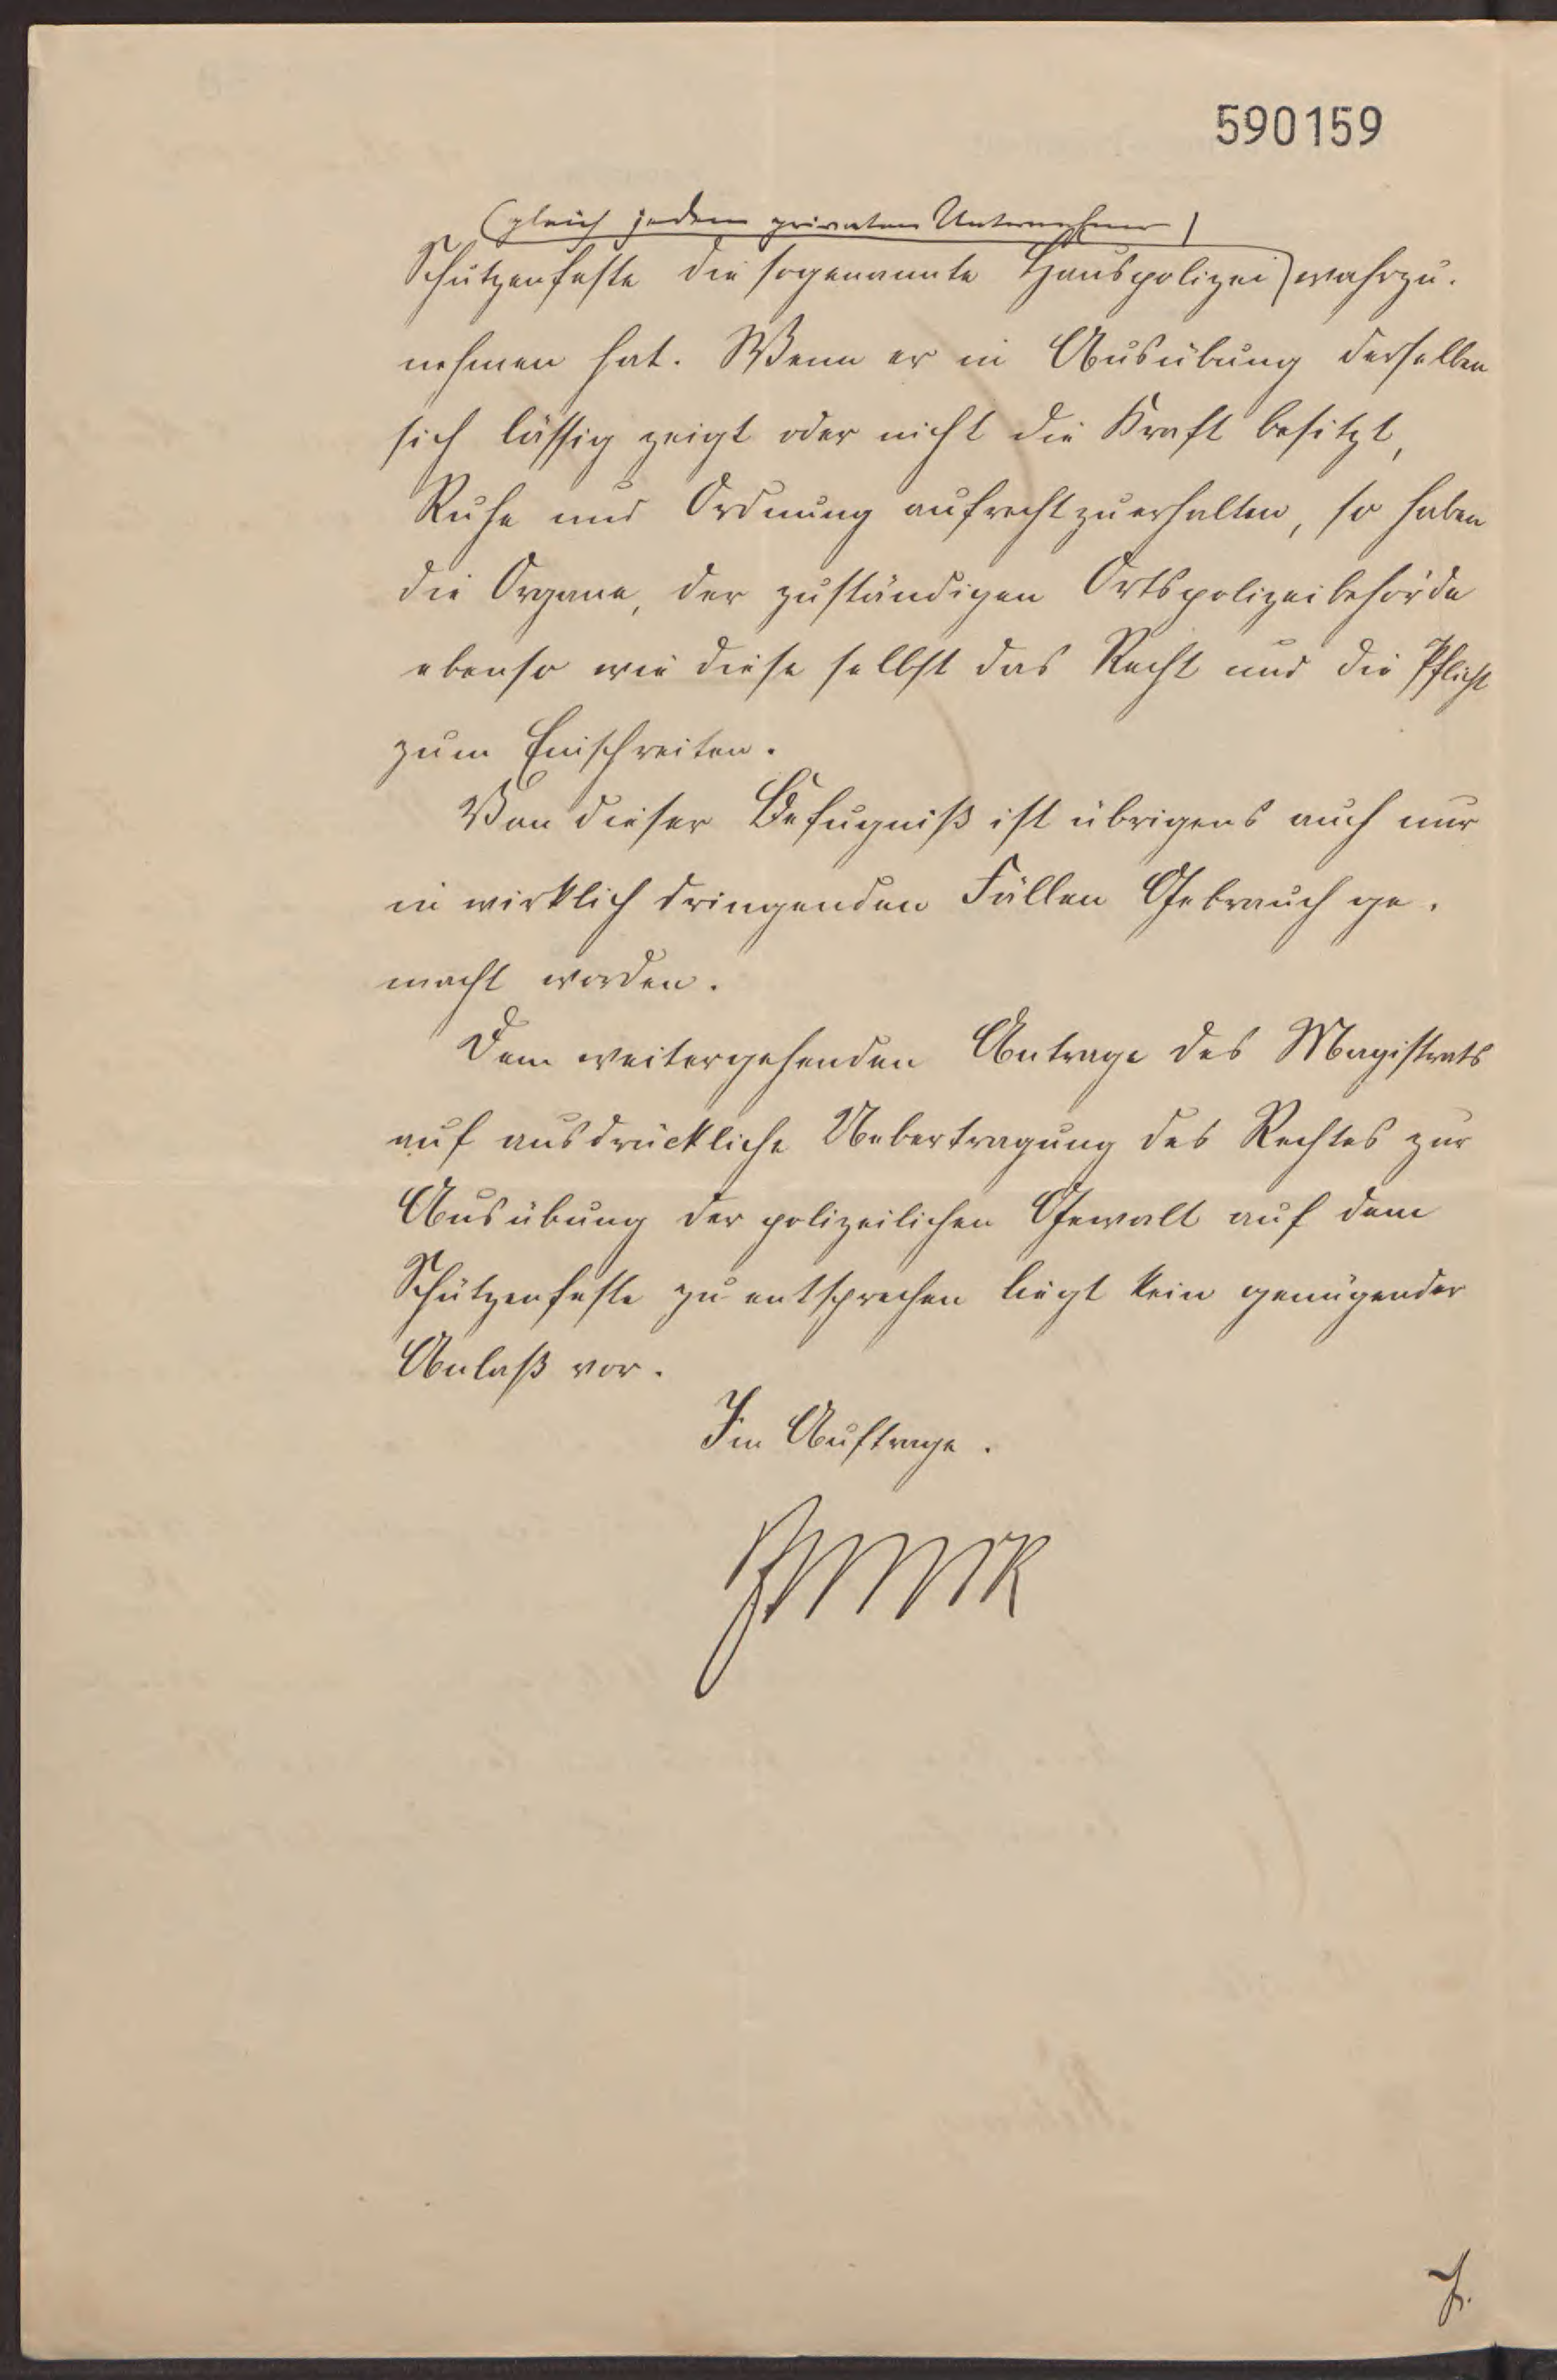 590159
(gleich jedem privaten Unternehmer)
Schützenfeste die sogenannte Hauspolizei wahrzu-
nehmen hat. Wenn er in Ausübung derselben
sich lässig zeigt oder nicht die Kraft besitzt,
Ruhe und Ordnung aufrecht zu erhalten, so haben
die Organe, der zuständigen Ortspolizeibehörde
ebenso wie diese selbst das Recht und die Pflicht
zum Einschreiten.
Von dieser Befugniß ist übrigens auch nur
in wirklich dringenden Fällen Gebrauch ge-
macht worden.
Dem weitergehenden Antrage des Magistrats
auf ausdrückliche Uebertragung des Rechtes zur
Ausübung der polizeilichen Gewalt auf dem
Schützenfeste zu entsprechen liegt kein genügender
Anlaß vor.
Im Auftrage.